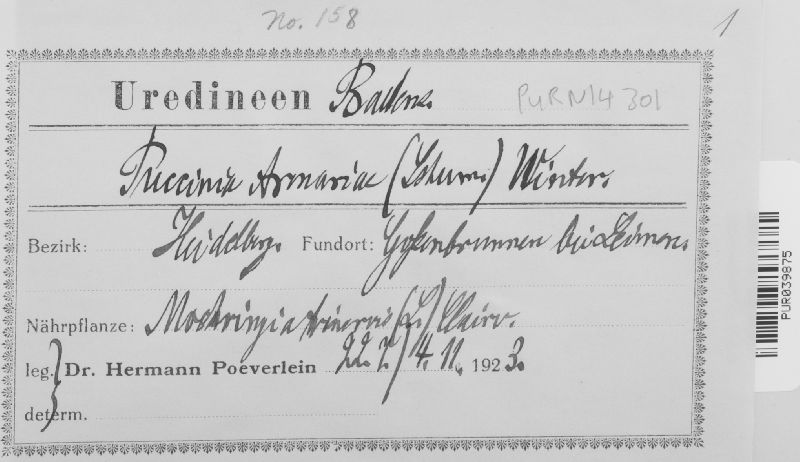 No. 158
1
Uredineen Badens.
PUR N14 301
Puccinia Arenariae (Schum.) Winter.
Bezirk: Heidelberg. Fundort: bei Leimen.
Nährpflanze: Moehringia trinervia (L.) Clairv.
leg. Dr. Hermann Poeverlein 22. 7./4. 11. 1923.
determ.
PUR039875